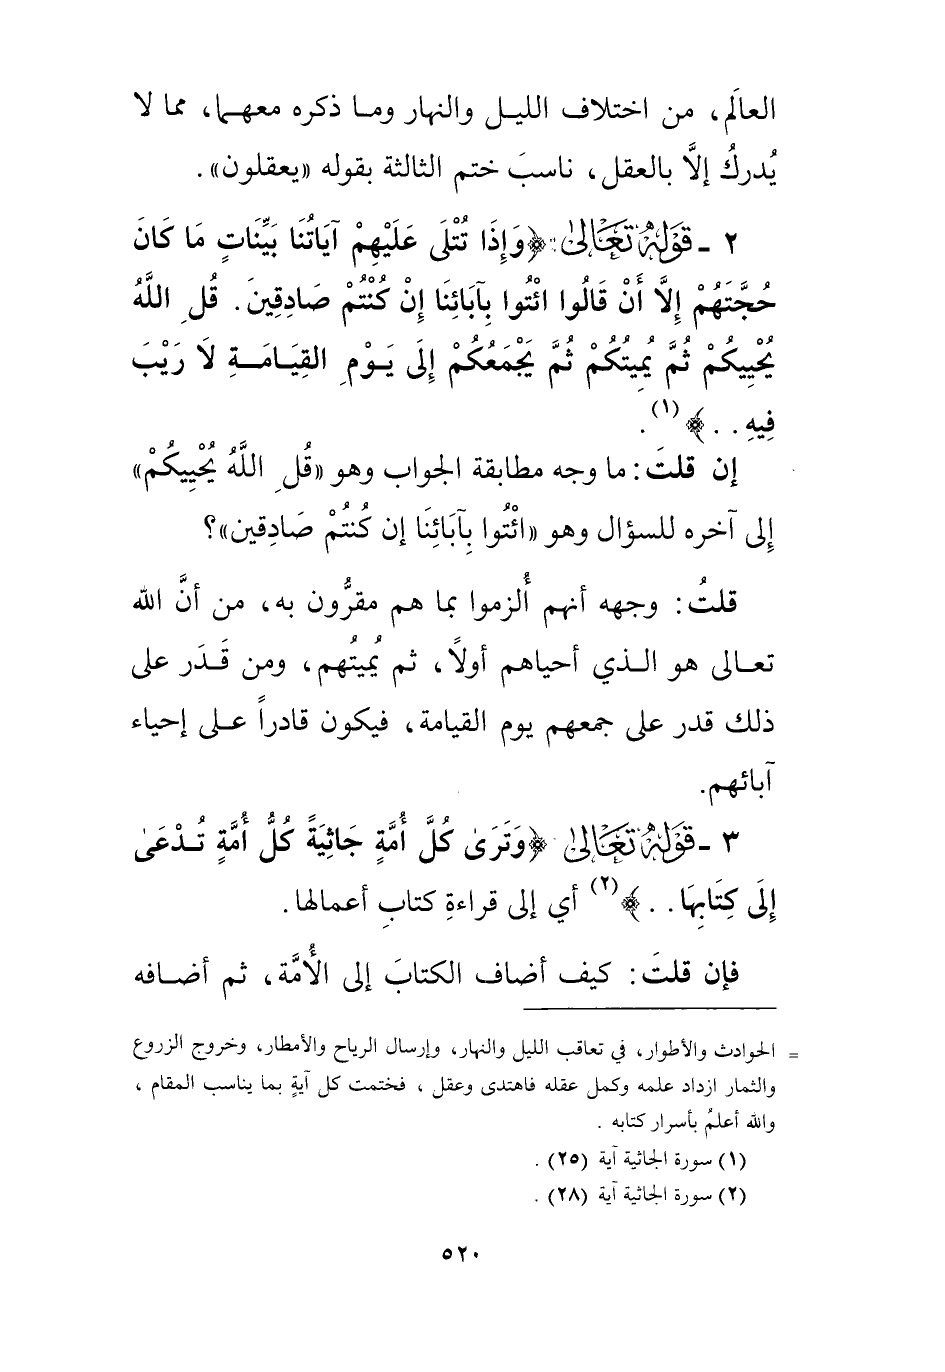 العالَم، من اختلاف الليل والنهار وما ذكره معهما، مما لا
يُدركُ إلَّا بالعقل، ناسبَ ختم الثالثة بقوله «يعقلون».
٢ - قَوْلُهُ تَعَالَىٰ: ﴿وَإِذَا تُتْلَى عَلَيْهِمْ آيَاتُنَا بَيِّنَاتٍ مَا كَانَ
حُجَّتَهُمْ إِلَّا أَنْ قَالُوا ائْتُوا بِآبَائِنَا إِنْ كُنْتُمْ صَادِقِينَ. قُلِ اللَّهُ
يُحْيِيكُمْ ثُمَّ يُمِيتُكُمْ ثُمَّ يَجْمَعُكُمْ إِلَى يَوْمِ القِيَامَةِ لَا رَيْبَ
فِيهِ . . ﴾(١).
إن قلتَ: ما وجه مطابقة الجواب وهو «قُلِ اللَّهُ يُحْيِيكُمْ»
إلى آخره للسؤال وهو «ائْتُوا بِآبَائِنَا إن كُنْتُمْ صَادِقِين»؟
قلتُ: وجهه أنهم أُلزموا بما هم مقرُّون به، من أنَّ الله
تعالى هو الذي أحياهم أولًا، ثم يُميتُهم، ومن قَدَر على
ذلك قدر على جمعهم يوم القيامة، فيكون قادراً على إحياء
آبائهم.
٣ - قَوْلُهُ تَعَالَىٰ ﴿وَتَرَىٰ كُلَّ أُمَّةٍ جَاثِيَةً كُلُّ أُمَّةٍ تُدْعَىٰ
إِلَى كِتَابِهَا. . ﴾(٢) أي إلى قراءةِ كتابِ أعمالها.
فإن قلتَ: كيف أضاف الكتابَ إلى الأُمَّة، ثم أضافه
= الحوادث والأطوار، في تعاقب الليل والنهار، وإرسال الرياح والأمطار، وخروج الزروع
والثمار ازداد علمه وكمل عقله فاهتدى وعقل ، فختمت كل آيةٍ بما يناسب المقام ،
والله أعلمُ بأسرار كتابه .
(١) سورة الجاثية آية (٢٥) .
(٢) سورة الجاثية آية (٢٨) .
٥٢٠